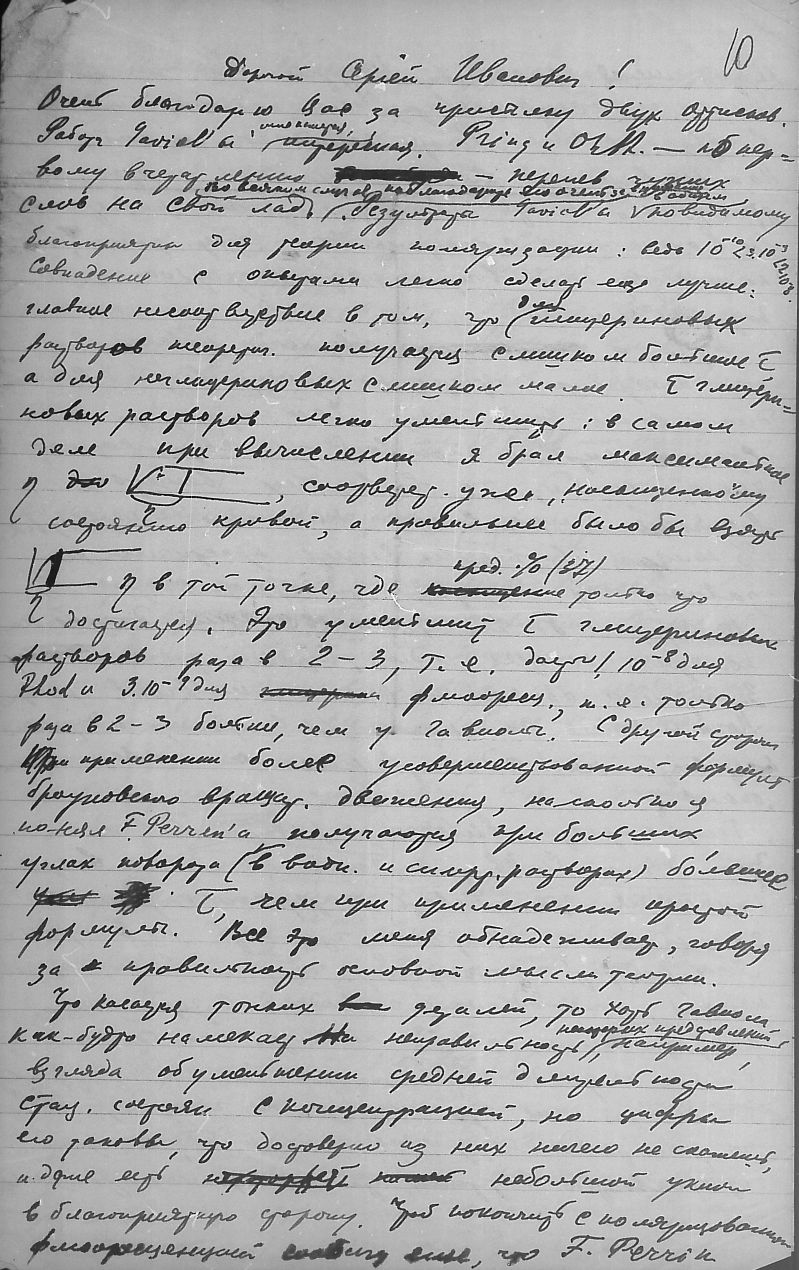 10
Дорогой Сергей Иванович!
Очень благодарю Вас за присылку двух оттисков.
Работа Gaviol'ы, интересная. Pring и — по пер-
вому впечатлению — перепев чужих
слов на свой лад, во всяком случае, Результаты Gaviol'ы повидимому
благоприятны для теории поляризации: ведь
Совпадение с опытами легко сделать еще лучше:
главное несоответствие в том, что для глицериновых
растворов теорет. получается слишком большое τ
а для неглицериновых слишком малое. τ глицери-
новых растворов легко уменьшить: в самом
деле при вычислении я брал максимальное
η , соответств. уже, насыщенному
состоянию кривой, а правильнее было бы взять
η в той точке, где пред. % (27) только что
достигается. Это уменьшит τ глицериновых
растворов раза в 2–3, т.е. даст 10⁻⁸ для
Rhod и 3.10⁻⁹ для флюоресц., т.е. только
раза в 2–3 больше, чем у Гавиолы. С другой стороны
при применении более усовершенствованной формулы
броуновского вращат. движения, насколько я
понял F. Perrin'а получаются при больших
углах поворота (в водн. и спирт. растворах) большее
τ, чем при применении простой
формулы. Все это меня обнадеживает, говоря
за правильность основной мысли теории.
Что касается тонких деталей, то хотя Гавиола
как-будто намекает на неправильность некоторых представлений, например,
взгляда об уменьшении средней длительности
стац. состоян с концентрацией, но цифры
его таковы, что достоверно из них ничего не скажешь,
и даже есть небольшой уклон
в благоприятную сторону. Чтоб покончить с поляризованной
флюоресценцией сообщу еще, что F. Perrin